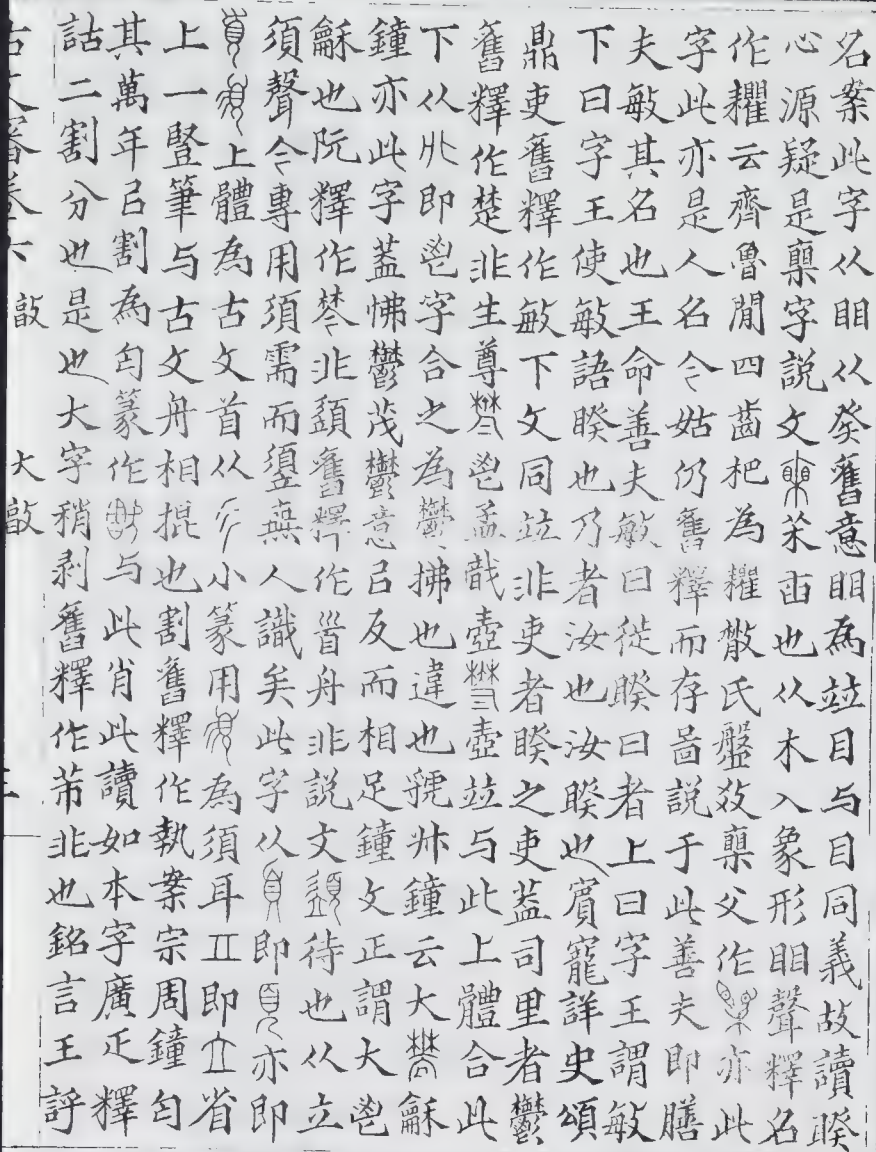 名案此字从䀠从癸舊意䀠為竝目与目同義故讀睽
心源疑是䆃字說文䆃茉臿也从木入象形䀠聲釋名
作欋云齊魯閒四齒杷為欋散氏盤父作亦此
字此亦是人名今姑仍舊釋而存啚說于此善夫即膳
夫敏其名也王命善夫敏曰徙睽曰者上曰字王謂敏
下曰字王使敏語睽也乃者汝也汝睽也賓寵詳史頌
鼎吏舊釋作敏下文同竝非吏者睽之吏蓋司里者鬱
舊釋作楚非生尊鬯孟戠壺壺竝与此上體合此
下从即鬯字合之為鬱拂也違也虢叔鐘云大龢
鐘亦此字蓋怫鬱茂鬱意㠯反而相足鐘文正謂大鬯
龢也阮釋作棽非䇓舊釋作首舟非說文䇓待也从立
須聲今專用須需而䇓無人識矣此字从即亦即
上體為古文首从小篆用為須耳即立省
上一豎筆与古文舟相掍也割舊釋作執案宗周鐘匄
其萬年㠯割為匄篆作与此肖此讀如本字廣疋釋
詁二割分也是也大字稍剥舊釋作芾非也銘言王評
古文審卷六 敼 大敼